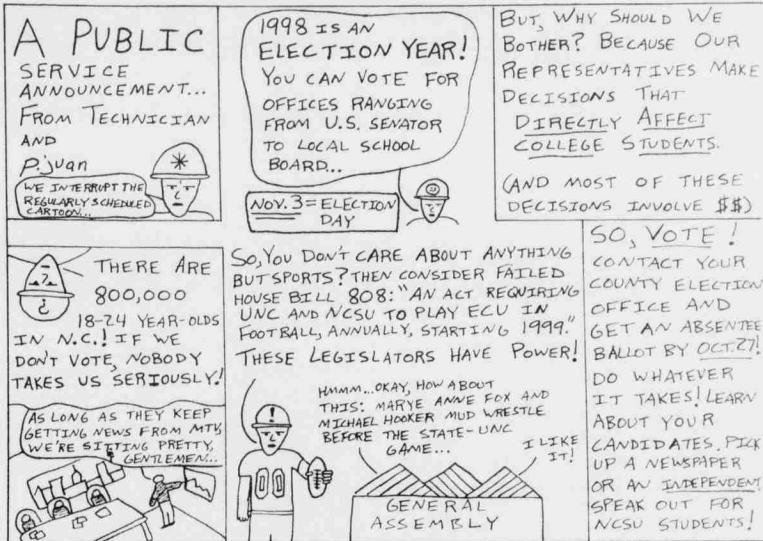 A PUBLIC
SERVICE
ANNOUNCEMENT...
FROM TECHNICIAN
AND
P.'juan
WE INTERRUPT THE
REGULARLY SCHEDULED
CARTOON...
1998 IS AN
ELECTION YEAR!
YOU CAN VOTE FOR
OFFICES RANGING
FROM U.S. SENATOR
TO LOCAL SCHOOL
BOARD...
NOV. 3 = ELECTION
DAY
BUT, WHY SHOULD WE
BOTHER? BECAUSE OUR
REPRESENTATIVES MAKE
DECISIONS THAT
DIRECTLY AFFECT
COLLEGE STUDENTS.
(AND MOST OF THESE
DECISIONS INVOLVE $$)
THERE ARE
800,000
18-24 YEAR-OLDS
IN N.C.! IF WE
DON'T VOTE, NOBODY
TAKES US SERIOUSLY!
AS LONG AS THEY KEEP
GETTING NEWS FROM MTV,
WE'RE SITTING PRETTY,
GENTLEMEN...
SO, YOU DON'T CARE ABOUT ANYTHING
BUT SPORTS? THEN CONSIDER FAILED
HOUSE BILL 808: "AN ACT REQUIRING
UNC AND NCSU TO PLAY ECU IN
FOOTBALL, ANNUALLY, STARTING 1999."
THESE LEGISLATORS HAVE POWER!
!
00
HMMM...OKAY, HOW ABOUT
THIS: MARYE ANNE FOX AND
MICHAEL HOOKER MUD WRESTLE
BEFORE THE STATE-UNC
GAME...
I LIKE
IT!
GENERAL
ASSEMBLY
SO, VOTE!
CONTACT YOUR
COUNTY ELECTION
OFFICE AND
GET AN ABSENTEE
BALLOT BY OCT.27!
DO WHATEVER
IT TAKES! LEARN
ABOUT YOUR
CANDIDATES. PICK
UP A NEWSPAPER
OR AN INDEPENDENT.
SPEAK OUT FOR
NCSU STUDENTS!